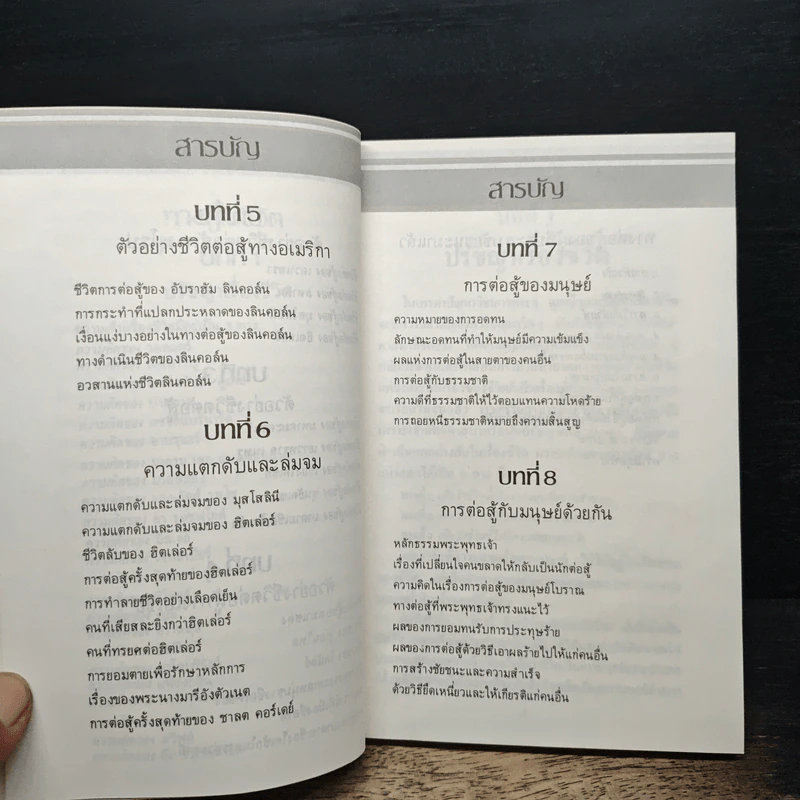 สารบัญ
บทที่ 5
ตัวอย่างชีวิตต่อสู้ทางอเมริกา
ชีวิตการต่อสู้ของ อับราฮัม ลินคอล์น
การกระทำที่แปลกประหลาดของลินคอล์น
เงื่อนแง่บางอย่างในทางต่อสู้ของลินคอล์น
ทางดำเนินชีวิตของลินคอล์น
อวสานแห่งชีวิตลินคอล์น
บทที่ 6
ความแตกดับและล่มจม
ความแตกดับและล่มจมของ มุสโสลินี
ความแตกดับและล่มจมของ ฮิตเล่อร์
ชีวิตลับของ ฮิตเล่อร์
การต่อสู้ครั้งสุดท้ายของฮิตเล่อร์
การทำลายชีวิตอย่างเลือดเย็น
คนที่เสียสละยิ่งกว่าฮิตเล่อร์
คนที่ทรยศต่อฮิตเล่อร์
การยอมตายเพื่อรักษาหลักการ
เรื่องของพระนางมารีอังตัวเนต
การต่อสู้ครั้งสุดท้ายของ ชาลต คอร์เดย์
สารบัญ
บทที่ 7
การต่อสู้ของมนุษย์
ความหมายของการอดทน
ลักษณะอดทนที่ทำให้มนุษย์มีความเข้มแข็ง
ผลแห่งการต่อสู้ในสายตาของคนอื่น
การต่อสู้กับธรรมชาติ
ความดีที่ธรรมชาติให้ไว้ตอบแทนความโหดร้าย
การถอยหนีธรรมชาติหมายถึงความสิ้นสูญ
บทที่ 8
การต่อสู้กับมนุษย์ด้วยกัน
หลักธรรมพระพุทธเจ้า
เรื่องที่เปลี่ยนใจคนขลาดให้กลับเป็นนักต่อสู้
ความคิดในเรื่องการต่อสู้ของมนุษย์โบราณ
ทางต่อสู้ที่พระพุทธเจ้าทรงแนะไว้
ผลของการยอมทนรับการประทุษร้าย
ผลของการต่อสู้ด้วยวิธีเอาผลร้ายไปให้แก่คนอื่น
การสร้างชัยชนะและความสำเร็จ
ด้วยวิธียึดเหนี่ยวและให้เกียรติแก่คนอื่น